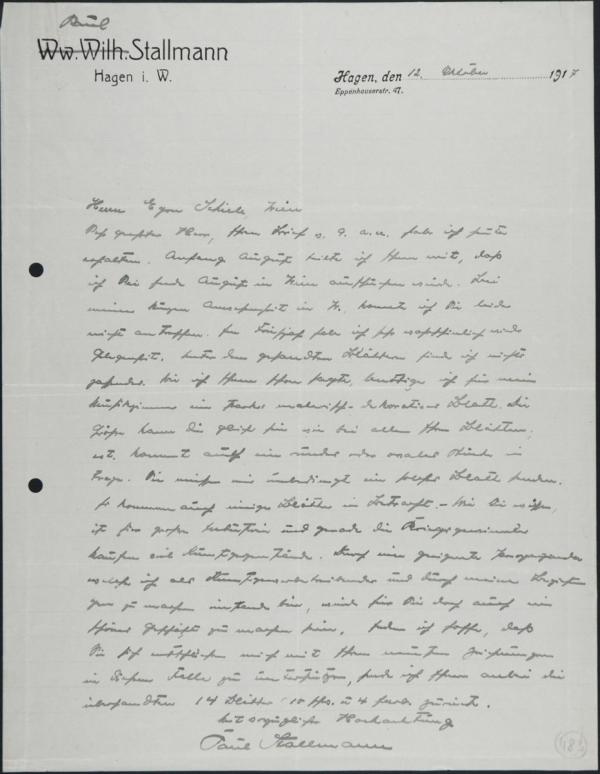 Paul
Ww. Wilh. Stallmann
Hagen i. W.
Hagen, den 12. Oktober 1917
Eppenhauserstr. 47.
Herrn Egon Schiele, Wien
Sehr geehrter Herr, Ihren Brief v. 9. a.c. habe ich
erhalten. Anfang August teilte ich Ihnen mit, daß
ich Sie Ende August in Wien aufsuchen würde. Bei
meiner kurzen Anwesenheit in W. konnte ich Sie leider
nicht antreffen. Im Frühjahr habe ich wieder
Gelegenheit. Unter den gesandten Blättern finde ich nichts
passendes. Wie ich Ihnen schon sagte, benötige ich für mein
Musikzimmer ein starkes malerisch-dekoratives Blatt. Die
Größe kann die gleiche sein wie bei allen Ihren Blättern,
evt. kommt auch ein rundes oder ovales Stück in
Frage. Sie müssen mir unbedingt ein solches Blatt senden.
Es kommen auch einige Blätter in Betracht. - Wie Sie wissen,
ist hier große Industrie und gerade die Kriegsgewinnler
kaufen viel Kunstgegenstände. Durch eine geeignete Propaganda
welche ich als Kunstgewerbetreibender und durch meine
zu machen imstande bin, wird für Sie doch auch ein
schönes Geschäft zu machen sein. Indem ich hoffe, daß
Sie sich entschließen mich mit Ihren neuesten Zeichnungen
in diesem Falle zu unterstützen, sende ich Ihnen anbei die
übersandten 14 Blätter (10 und 4 farb. zurück.
Mit vorzüglicher Hochachtung
Paul Stallmann